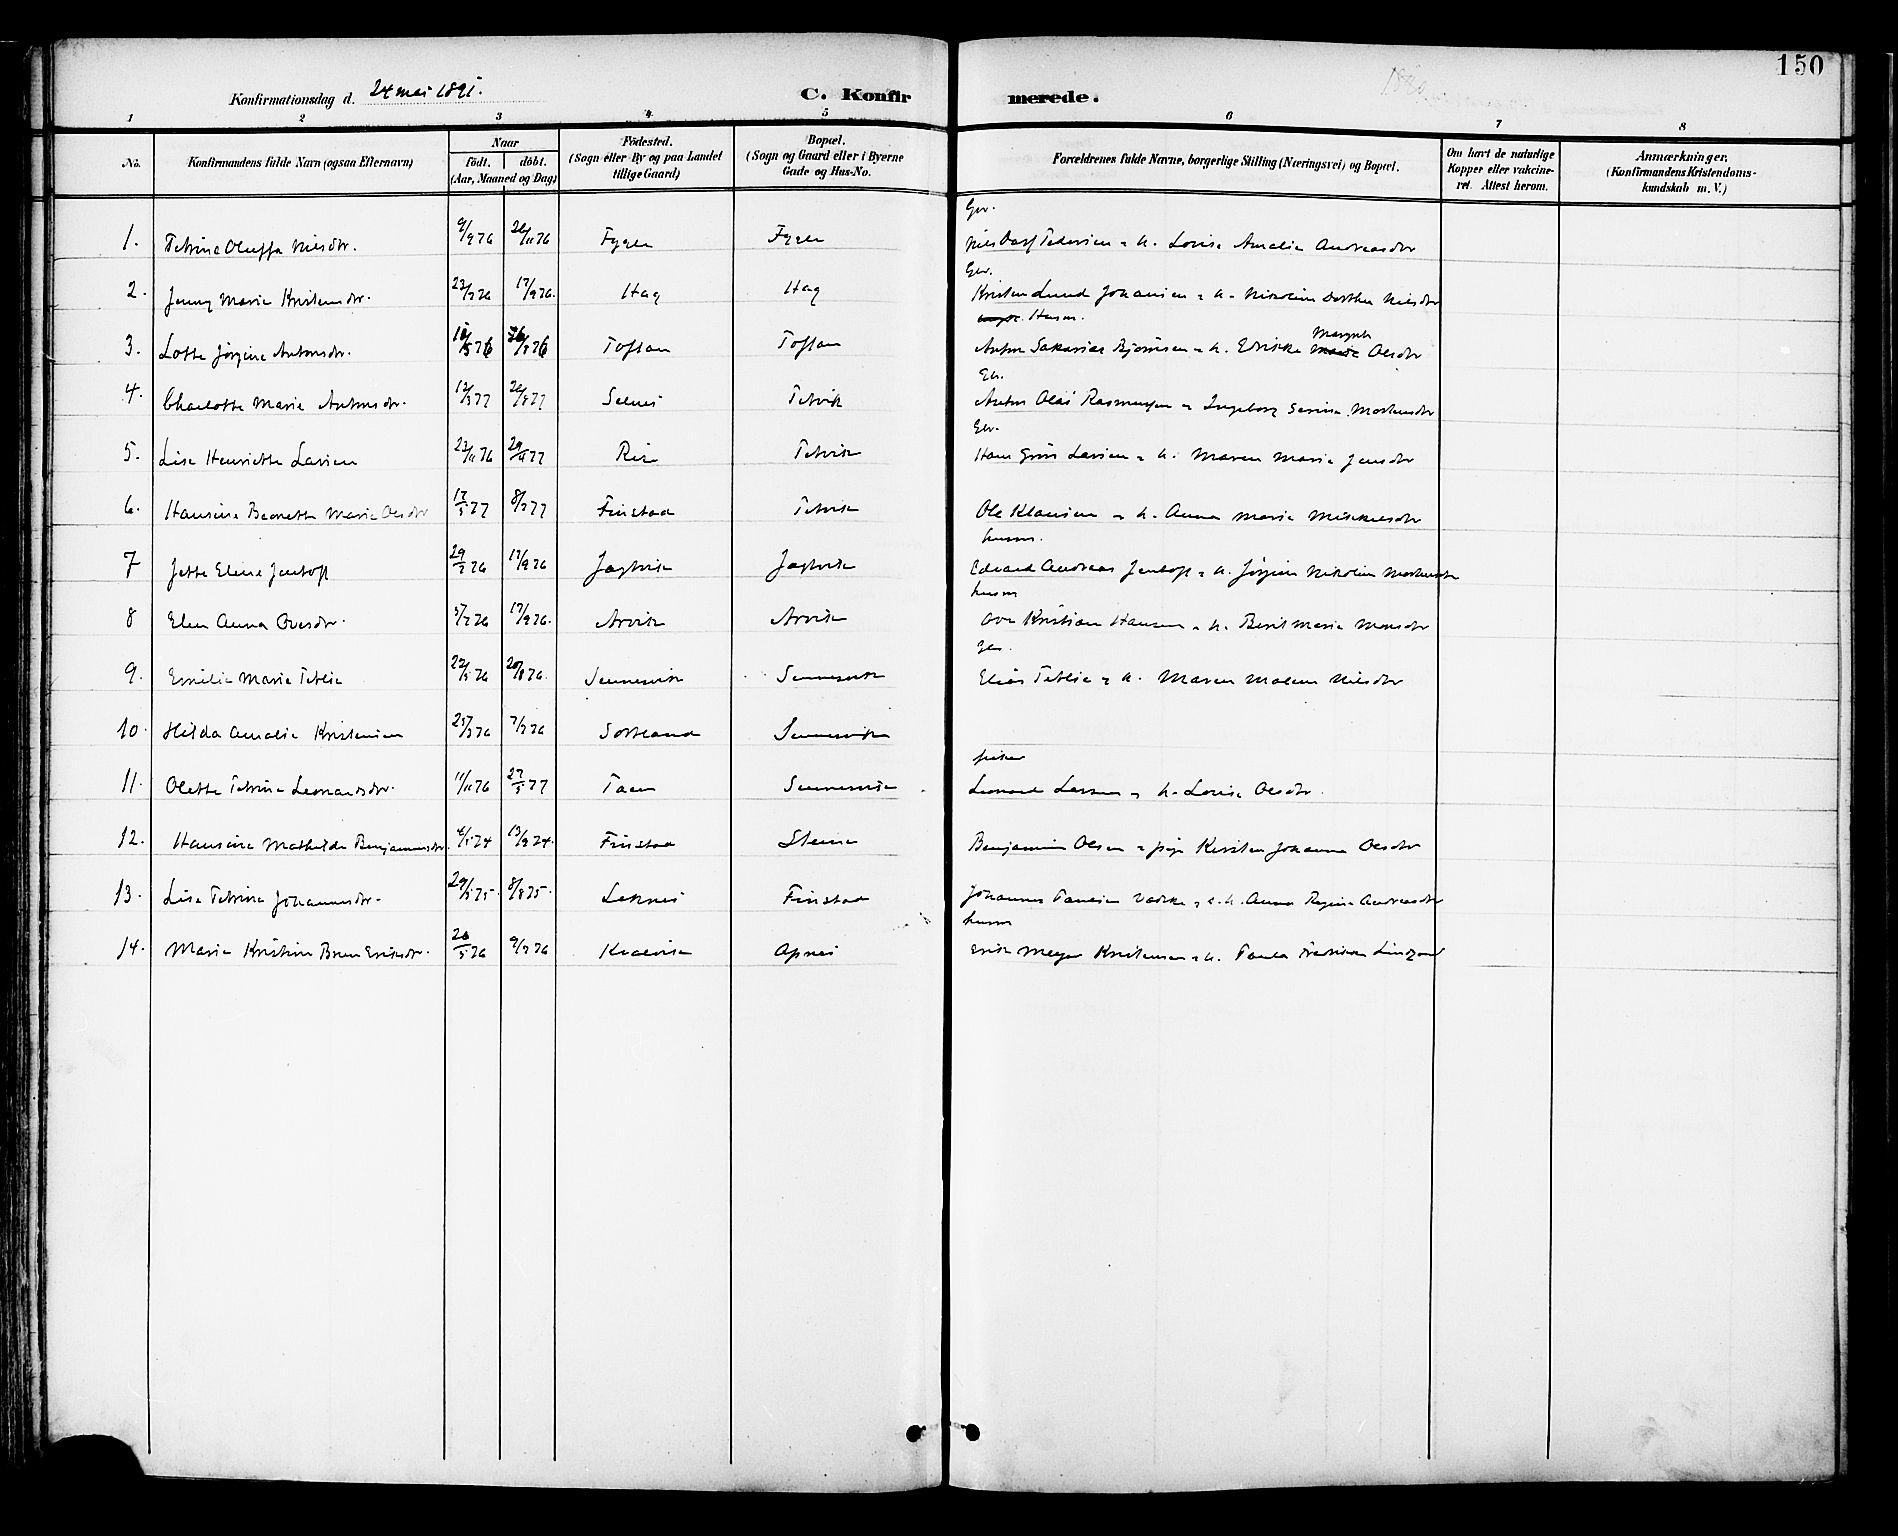 150
Konfirmationsdag d. 24 mai 1891.
C. Konfirmerede.
1 2 3 4 5 6 7 8
No.
Konfirmandens fulde Navn (ogsaa Efternavn)
Naar
födt. döbt.
(Aar, Maaned og Dag)
Födested.
(Sogn eller By og paa Landet
tillige Gaard)
Bopæl.
(Sogn og Gaard eller i Byerne
Gade og Hus-No.
Forældrenes fulde Navne, borgerlige Stilling (Næringsvei) og Bopæl.
Om havt de naturlige
Kopper eller vakcine-
ret. Attest herom.
Anmærkninger,
(Konfirmandens Kristendoms-
kundskab m. V.)
Gbr.
1. Petrine Oluffa Nilsdtr. 9/9 76 26/11 76 Fygle Fygle Nils Dorf Pedersen & h. Lovise Amalia Andreasdtr
Gbr.
2. Jenny Marie Kristensdtr. 17/9 76. Hag Hag Kristen Lund Johansen & h. Nikoline Dorthea Nilsdtr
Husm.
3. Lotte Jørgine Antonsdtr. Toftan Toftan Anton Sakarias Bjørnsen & h. Edvikke Margrete Olsdtr
Gbr.
4. Charlotte Marie Antonsdtr. 12/3 77 Selnes Petvik Anton Olai Rasmussen & Ingeborg Serina Mortensdtr
Gbr.
5. Lise Henriette Larsen 23/11 76 Rise Petvik Hans Grøn Larsen & h. Maren Maria Jensdtr
6. Hansine Bernette Marie Olsdtr 17/5 77 8/7 77 Finstad Petvik Ole Klausen & h. Anna Maria Mikkelsdtr
husm.
7 Jette Eline Jentoft 17/9 76 Jagtvik Jagtvik Edvard Andreas Jentoft & h. Jørgine Nikoline Mortensdtr
husm
8 Elen Anna Ovesdtr. 5/7 76 17/9 76. Arvik Arvik Ove Kristian Hansen & h. Berit Maria Monsdtr
Gbr.
9. Emilie Marie Petlie 22/5 76 20/8 76. Sennesvik Sennesvik Elias Petlie & h. Maren Malene Nilsdtr
10. Hilda Amalie Kristensen 25/3 76 7/7 76 Sortland Sennesvik
fisker
11. Olette Petrine Leonardsdtr. 11/11 76 27/5 77 Taen Sennesvik Leonard Larsen & h. Lovise Olsdtr.
12. Hansine Mathilde Benjaminsdtr. 4/5 74 13/9 74. Finstad Steine Benjamin Olsen & pige Kirsten Johanna Olsdtr
13. Lise Petrine Johannesdtr. 29/5 75. 8/8 75. Leknes Finstad Johannes & h. Anna Regine Andreasdtr
husm
14. Marie Kristine Brun Eriksdtr. 20/5 76 9/7 76 Kvalvik Apnes Erik Meyer Kristensen & h. Paula Fredrikke